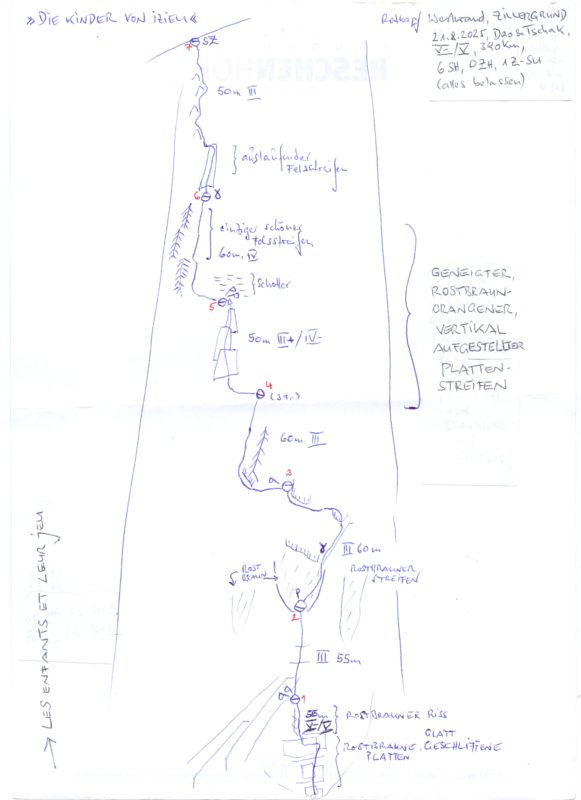 »DIE KINDER VON IZIEU«
Rotkopf Westwand, ZILLERGRUND
21.8.2025, Dao & Tschak,
V-/V, 390km,
6 SH, 0ZH, 1Z-SU
(alles belassen)
RESCHENHOF
7
SZ
50m III
auslaufender
Felsstreifen
6
einziger schöner
Felsstreifen
60m, IV
Schotter
5
50m III+/IV-
GENEIGTER,
ROSTBRAUN-
ORANGENER,
VERTIKAL
AUFGESTELLTER
PLATTEN-
STREIFEN
4
60m III
3
III 60m
ROST
BRAUN
ROSTBRAUNER
STREIFEN
2
III 55m
1
55m
V-/V
ROSTBRAUNER RISS
ROSTBRAUNE, GLATT
GESCHLIFFENE
PLATTEN
→ LES ENFANTS ET LEUR JEU